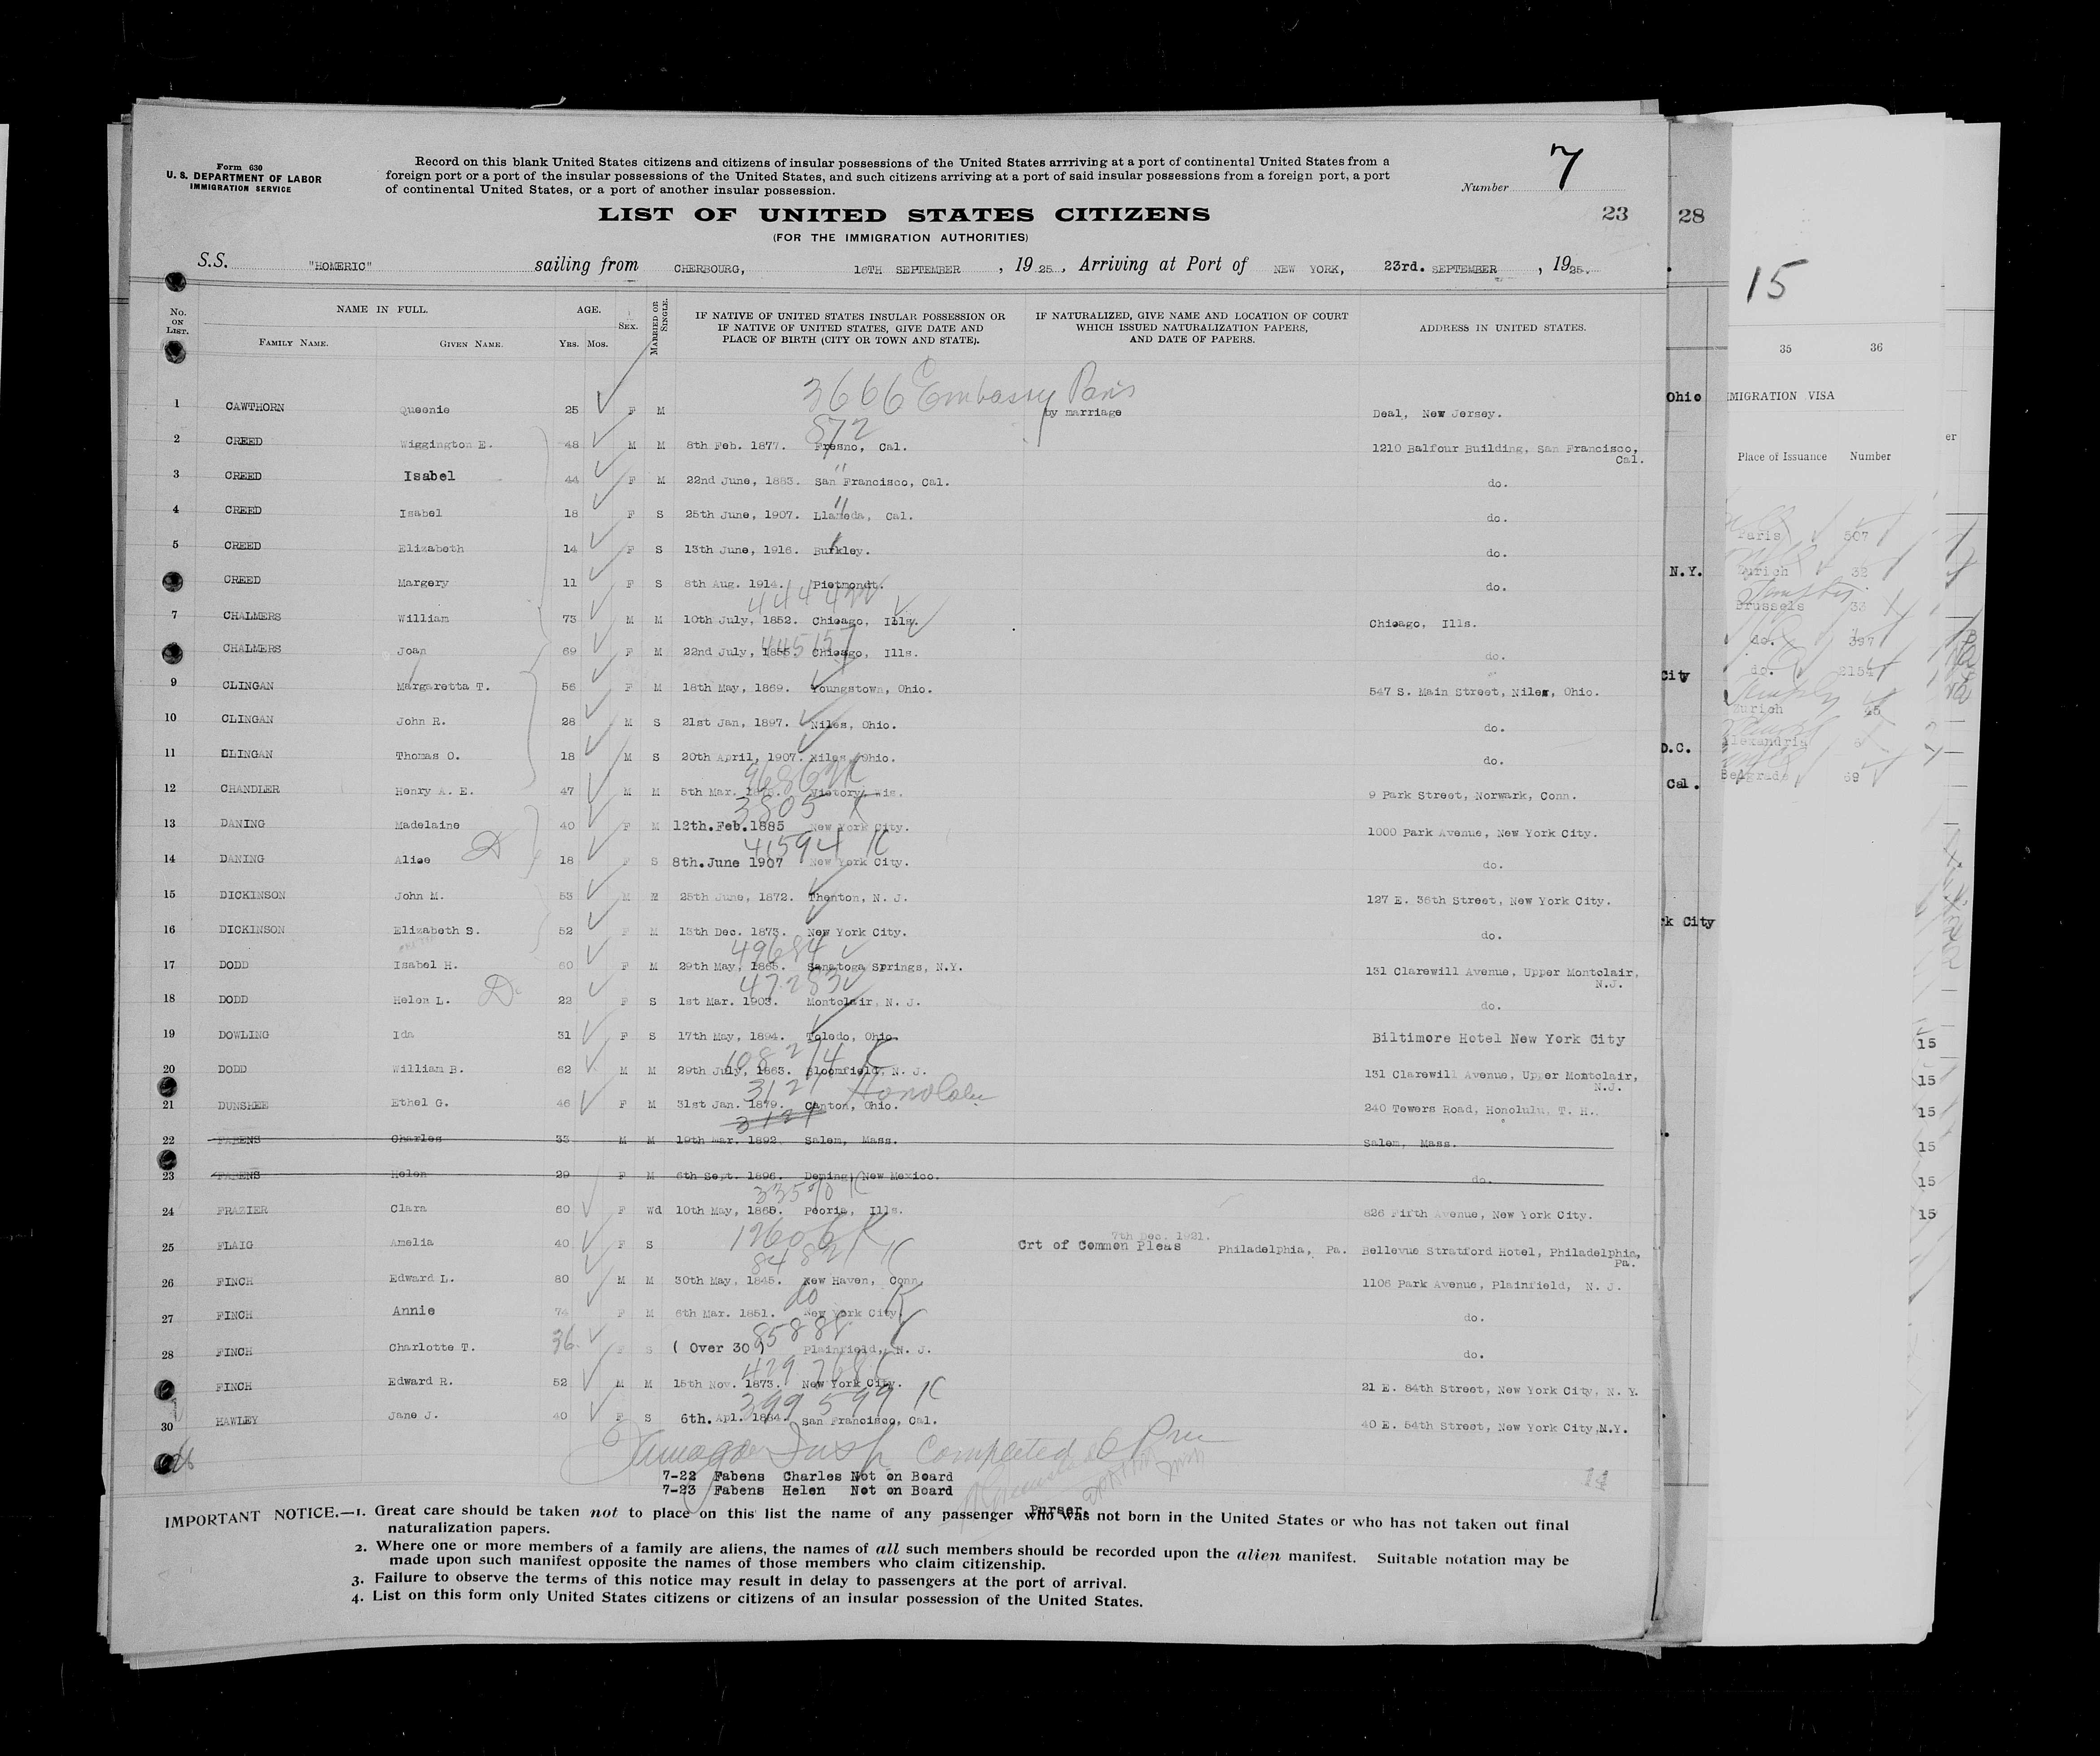 Form 630
U. S. DEPARTMENT OF LABOR
IMMIGRATION SERVICE
Record on this blank United States citizens and citizens of insular possessions of the United States arrriving at a port of continental United States from a
foreign port or a port of the insular possessions of the United States, and such citizens arriving at a port of said insular possessions from a foreign port, a port
of continental United States, or a port of another insular possession.
Number 7
LIST OF UNITED STATES CITIZENS
23
28
(FOR THE IMMIGRATION AUTHORITIES)
S.S. "HOMERIC" sailing from CHERBOURG, 16TH SEPTEMBER, 1925, Arriving at Port of NEW YORK, 23rd. SEPTEMBER, 1925.
No. ON LIST. NAME IN FULL. FAMILY NAME. GIVEN NAME. AGE. Yrs. Mos. SEX. MARRIED OR SINGLE.
IF NATIVE OF UNITED STATES INSULAR POSSESSION OR
IF NATIVE OF UNITED STATES, GIVE DATE AND
PLACE OF BIRTH (CITY OR TOWN AND STATE).
IF NATURALIZED, GIVE NAME AND LOCATION OF COURT
WHICH ISSUED NATURALIZATION PAPERS,
AND DATE OF PAPERS.
ADDRESS IN UNITED STATES.
3666 Embassy Paris
1 CAWTHORN Queenie 25 F M by marriage Deal, New Jersey.
872
2 CREED Wiggington E. 48 M M 8th Feb. 1877. Fresno, Cal. 1210 Balfour Building, San Francisco,
Cal.
3 CREED Isabel 44 F M 22nd June, 1883. San Francisco, Cal. do.
4 CREED Isabel 18 F S 25th June, 1907. Llameda, Cal. do.
5 CREED Elizabeth 14 F S 13th June, 1916. Burkley. do.
CREED Margery 11 F S 8th Aug. 1914. Pietmondt. do.
7 CHALMERS William 73 M M 10th July, 1852. Chicago, Ills. Chicago, Ills.
445157
CHALMERS Joan 69 F M 22nd July, 1855. Chicago, Ills. do.
9 CLINGAN Margaretta T. 56 F M 18th May, 1869. Youngstown, Ohio. 547 S. Main Street, Niles, Ohio.
10 CLINGAN John R. 28 M S 21st Jan, 1897. Niles, Ohio. do.
11 CLINGAN Thomas O. 18 M S 20th April, 1907. Niles, Ohio. do.
12 CHANDLER Henry A. E. 47 M M 5th Mar. Victory, Wis. 9 Park Street, Norwark, Conn.
3805 K
13 DANING Madelaine 40 F M 12th.Feb.1885 New York City. 1000 Park Avenue, New York City.
41594 K
14 DANING Alice 18 F S 8th.June 1907 New York City. do.
15 DICKINSON John M. 53 M M 25th June, 1872. Thenton, N. J. 127 E. 36th Street, New York City.
16 DICKINSON Elizabeth S. 52 F M 13th Dec. 1873. New York City. do.
49684
17 DODD Isabel H. 60 F M 29th May, 1865. Sanatoga Springs, N.Y. 131 Clarewill Avenue, Upper Montclair,
N.J.
47283
18 DODD Helen L. 22 F S 1st Mar. 1903. Montclair, N. J. do.
19 DOWLING Ida 31 F S 17th May, 1894. Toledo, Ohio. Biltimore Hotel New York City
108274 K
20 DODD William B. 62 M M 29th July, 1863. Bloomfield, N. J. 131 Clarewill Avenue, Upper Montclair,
N.J.
3121 Honolulu
21 DUNSHEE Ethel G. 46 F M 31st Jan. 1879. Canton, Ohio. 240 Towers Road, Honolulu, T. H.
3121
22 FABENS Charles 33 M M 19th Mar. 1892. Salem, Mass. Salem, Mass.
23 FABENS Helen 29 F M 6th Sept. 1896. Deming, New Mexico. do.
24 FRAZIER Clara 60 F Wd 10th May, 1865. Peoria, Ills. 826 Fifth Avenue, New York City.
12606 K
7th Dec. 1921.
25 FLAIG Amelia 40 F S Crt of Common Pleas Philadelphia, Pa. Bellevue Stratford Hotel, Philadelphia,
Pa.
84821 K
26 FINCH Edward L. 80 M M 30th May, 1845. New Haven, Conn. 1106 Park Avenue, Plainfield, N. J.
do K
27 FINCH Annie 74 F M 6th Mar. 1851. New York City. do.
85888
28 FINCH Charlotte T. 36 F S ( Over 30 ) Plainfield, N. J. do.
FINCH Edward R. 52 M M 15th Nov. 1873. New York City. 21 E. 84th Street, New York City, N. Y.
399599 K
30 HAWLEY Jane J. 40 F S 6th. Apl. 1884. San Francisco, Cal. 40 E. 54th Street, New York City,N.Y.
Insp Completed
7-22 Fabens Charles Not on Board
7-23 Fabens Helen Not on Board
14
Purser.
IMPORTANT NOTICE.—1. Great care should be taken not to place on this list the name of any passenger who was not born in the United States or who has not taken out final
naturalization papers.
2. Where one or more members of a family are aliens, the names of all such members should be recorded upon the alien manifest. Suitable notation may be
made upon such manifest opposite the names of those members who claim citizenship.
3. Failure to observe the terms of this notice may result in delay to passengers at the port of arrival.
4. List on this form only United States citizens or citizens of an insular possession of the United States.
Ohio
N.Y.
City
D.C.
Cal.
k City
15
35 36
MIGRATION VISA
Place of Issuance Number
Paris 507
Zurich 32
Brussels 33
do. 397
do. 2154
Zurich 45
Alexandria 6
Belgrade 69
er
15
15
15
15
15
15